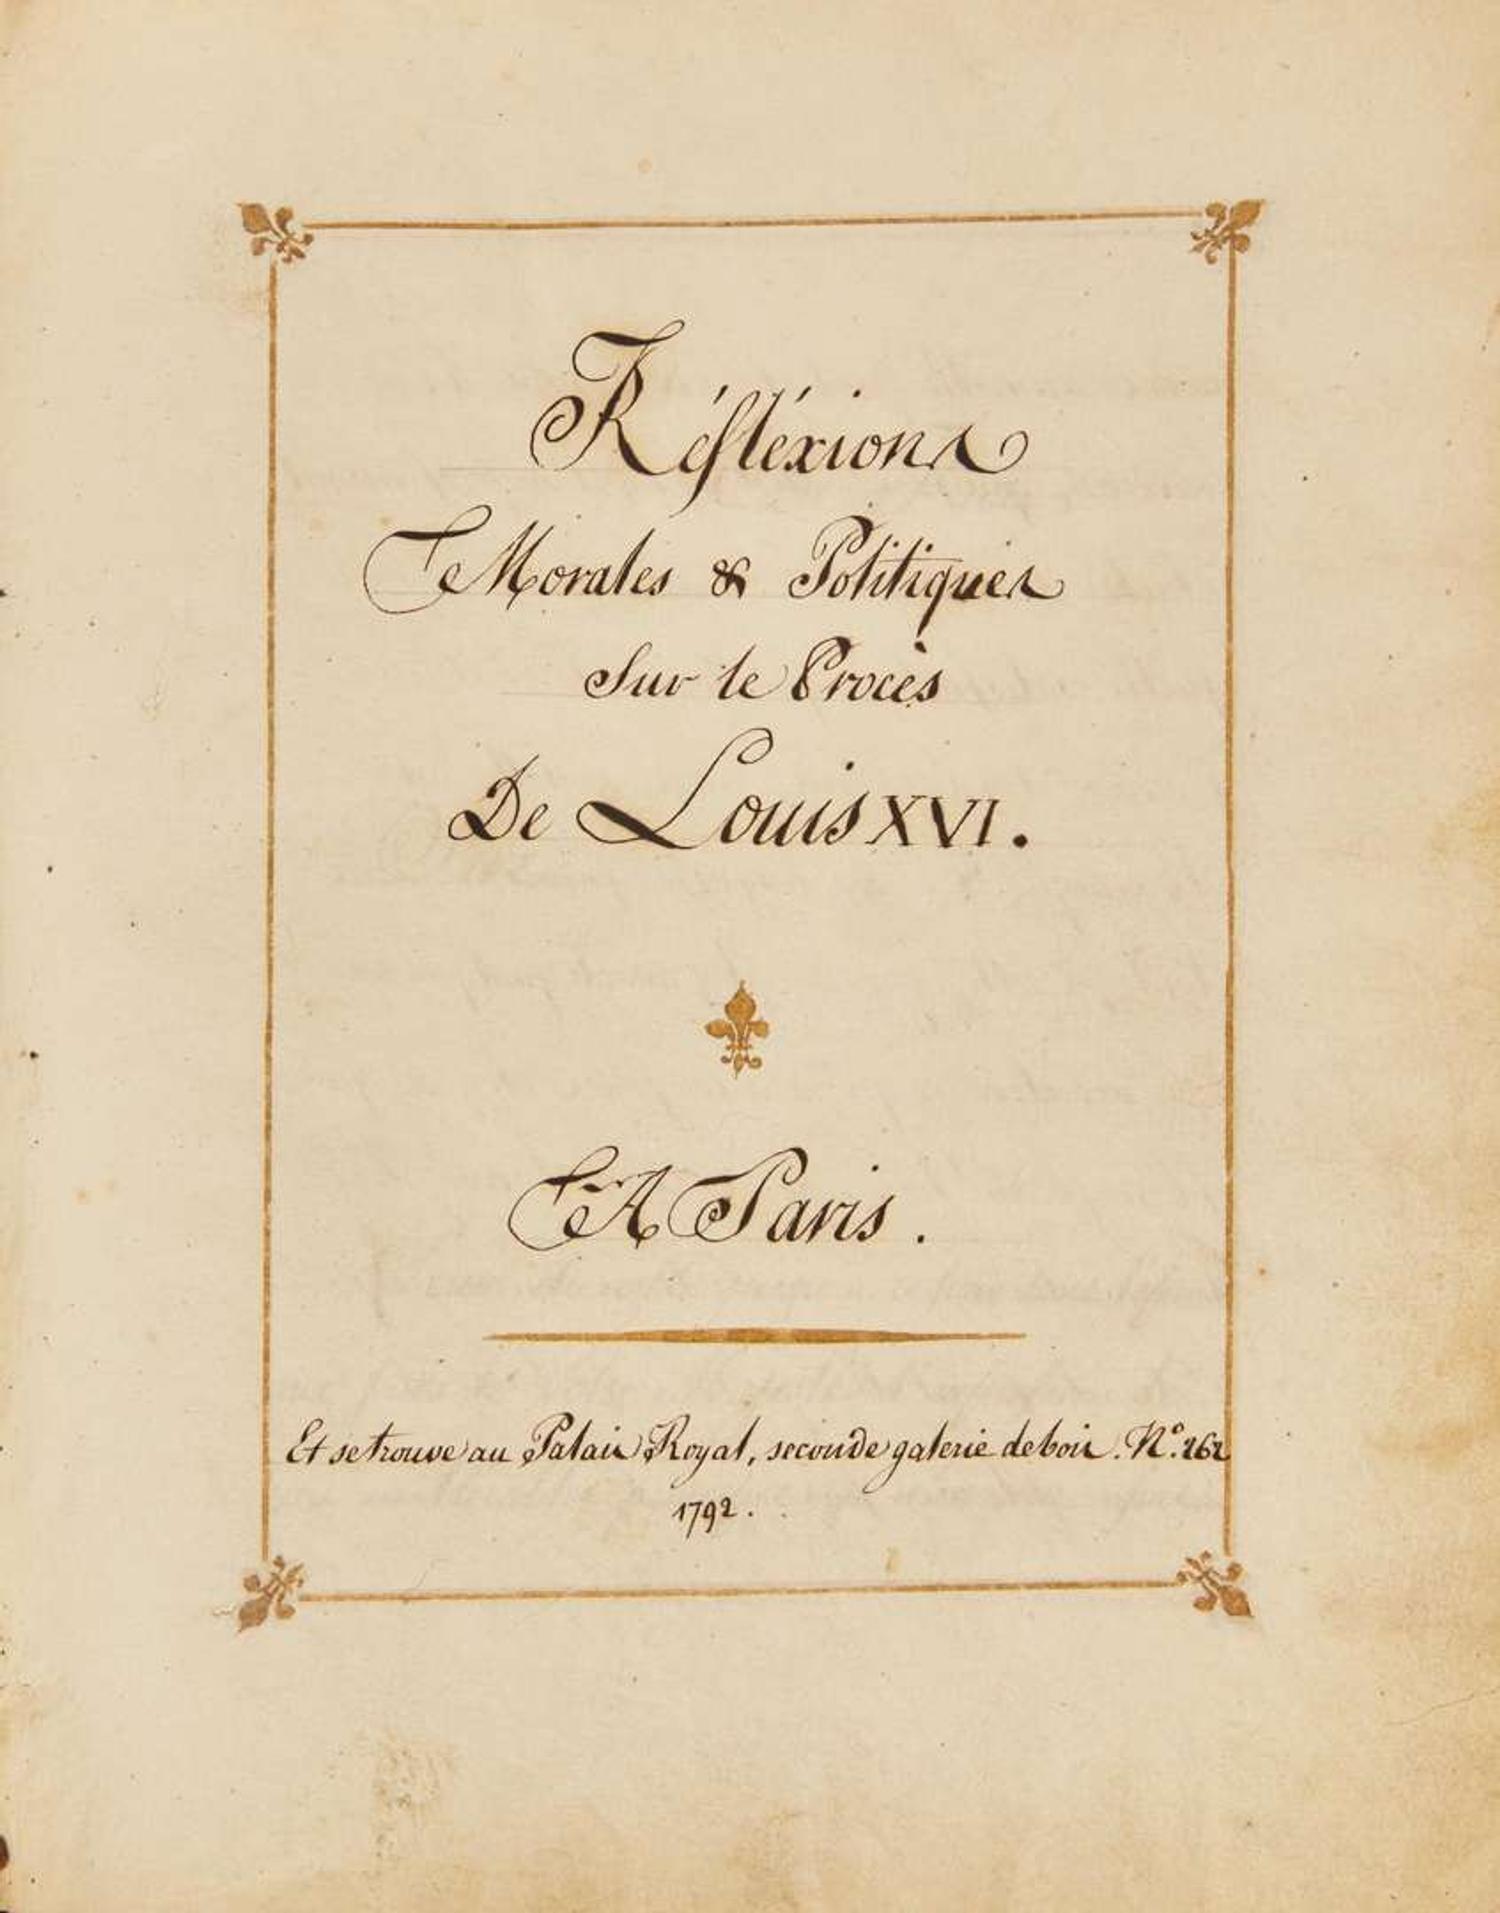 Réfléxions
Morales & Politiques
Sur le Procès
De Louis XVI.
A Paris.
Et se trouve au Palais Royal, seconde galerie de bois. N.º 262
1792.